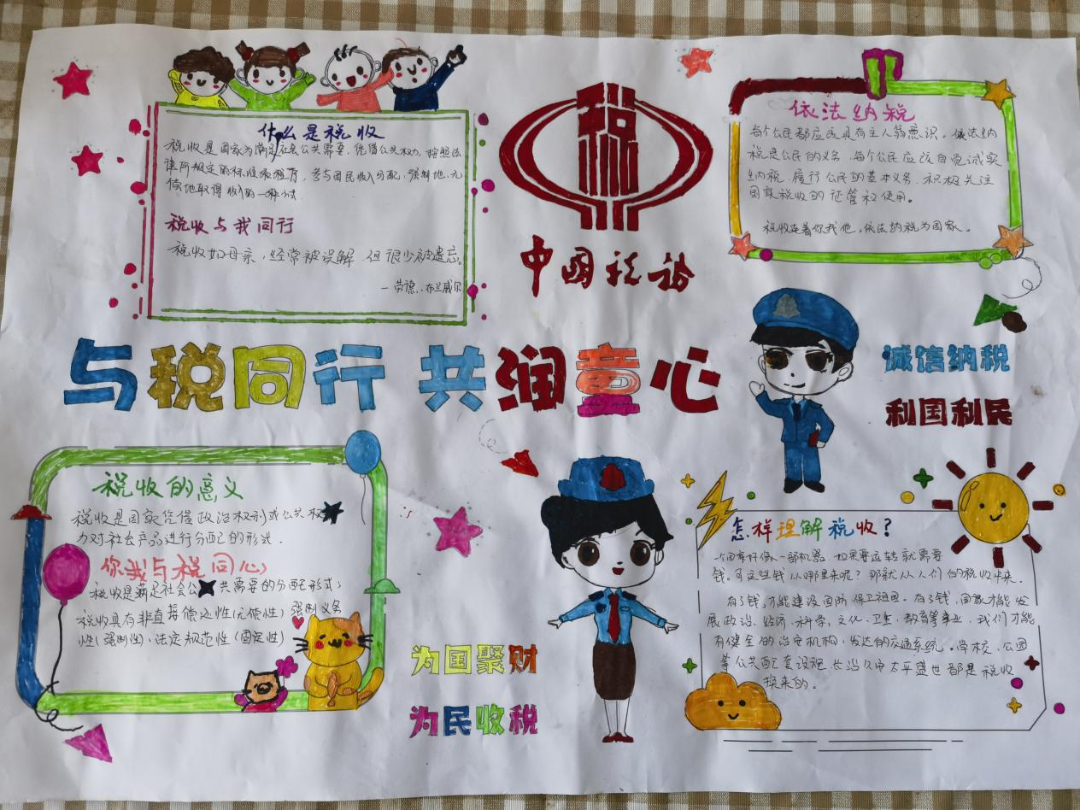 什么是税收
税收是国家为满足社会公共需要,凭借公共权力,按照法
律所规定的标准和程序,参与国民收入分配,强制地、无
偿地取得收的一种方式
税收与我同行
税收如母亲,经常被误解 但很少被遗忘
—劳德.布兰威尔
税
中国税务
依法纳税
每个公民都应该具有主人翁意识。依法纳
税是公民的义务,每个公民应该自觉诚实
纳税,履行公民的基本义务,积极关注
国家税收的征管和使用。
税收连着你我他,依法纳税为国家。
与税同行 共润童心
诚信纳税
利国利民
税收的意义
税收是国家凭借政治权利或公共权
力对社会产品进行分配的形式.
你我与税同心
税收是满足社会公共需要的分配形式;
税收具有非直接偿还性(无偿性)强制义务
性(强制性)、法定规范性(固定性)
为国聚财
为民收税
怎样理解税收?
一个国家好像一部机器,如果要运转就需要
钱。可这些钱从哪里来呢?那就从人们的税收中来.
有了钱,才能建设国防 保卫祖国。有了钱,国家才能发
展政治、经济、科学、文化、卫生、教育等事业,我们才能
有健全的治安机构,发达的交通系统。学校、公园
等公共配套设施.长治久安 太平盛世 都是税收
换来的。